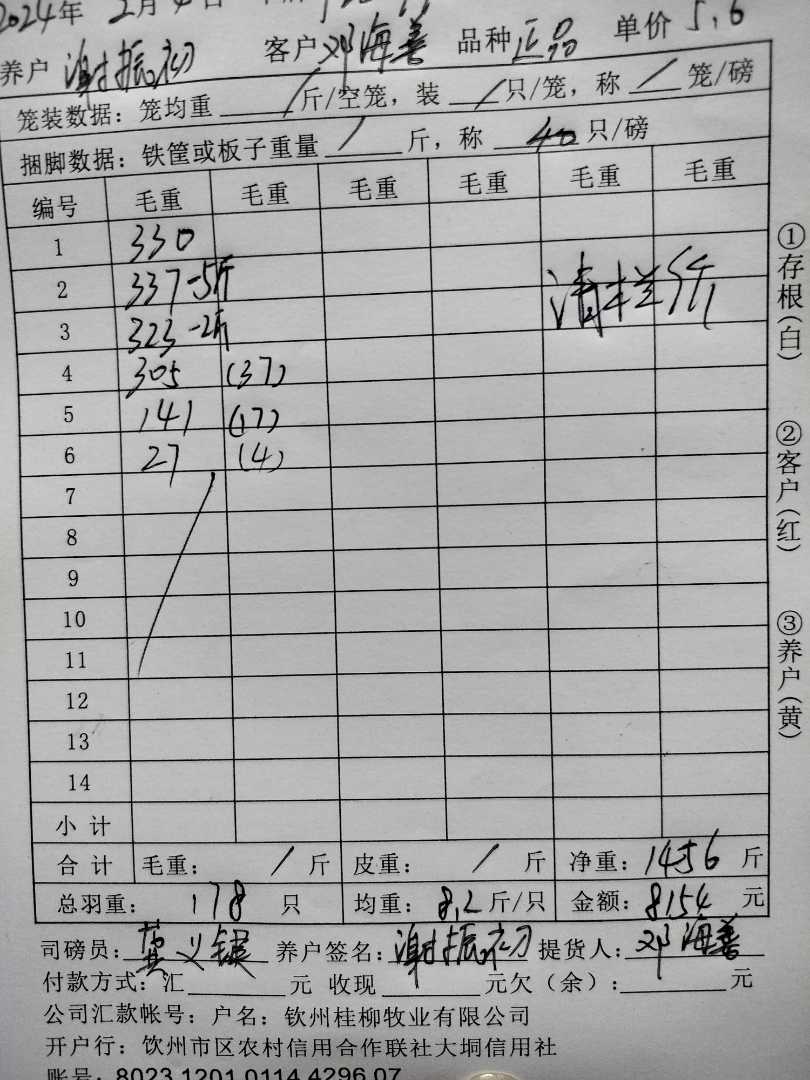 2024年 2月4日
养户 谢振初 客户 邓海善 品种 正品 单价 5.6
笼装数据：笼均重 / 斤/空笼，装 / 只/笼，称 / 笼/磅
捆脚数据：铁筐或板子重量 / 斤，称 40 只/磅
编号 毛重 毛重 毛重 毛重 毛重 毛重
1 330
2 337-5斤 清栏
3 323-2斤
4 305 (37)
5 141 (17)
6 27 (4)
7
8
9
10
11
12
13
14
小计
合计 毛重： / 斤 皮重： / 斤 净重：1456 斤
总羽重： 178 只 均重： 8.2 斤/只 金额：8154 元
司磅员： 养户签名：谢振初 提货人：邓海善
付款方式：汇 元 收现 元欠（余）： 元
公司汇款帐号：户名：钦州桂柳牧业有限公司
开户行：钦州市区农村信用合作联社大垌信用社
账号：8023 1201 0114 4296 07
①存根(白)
②客户(红)
③养户(黄)